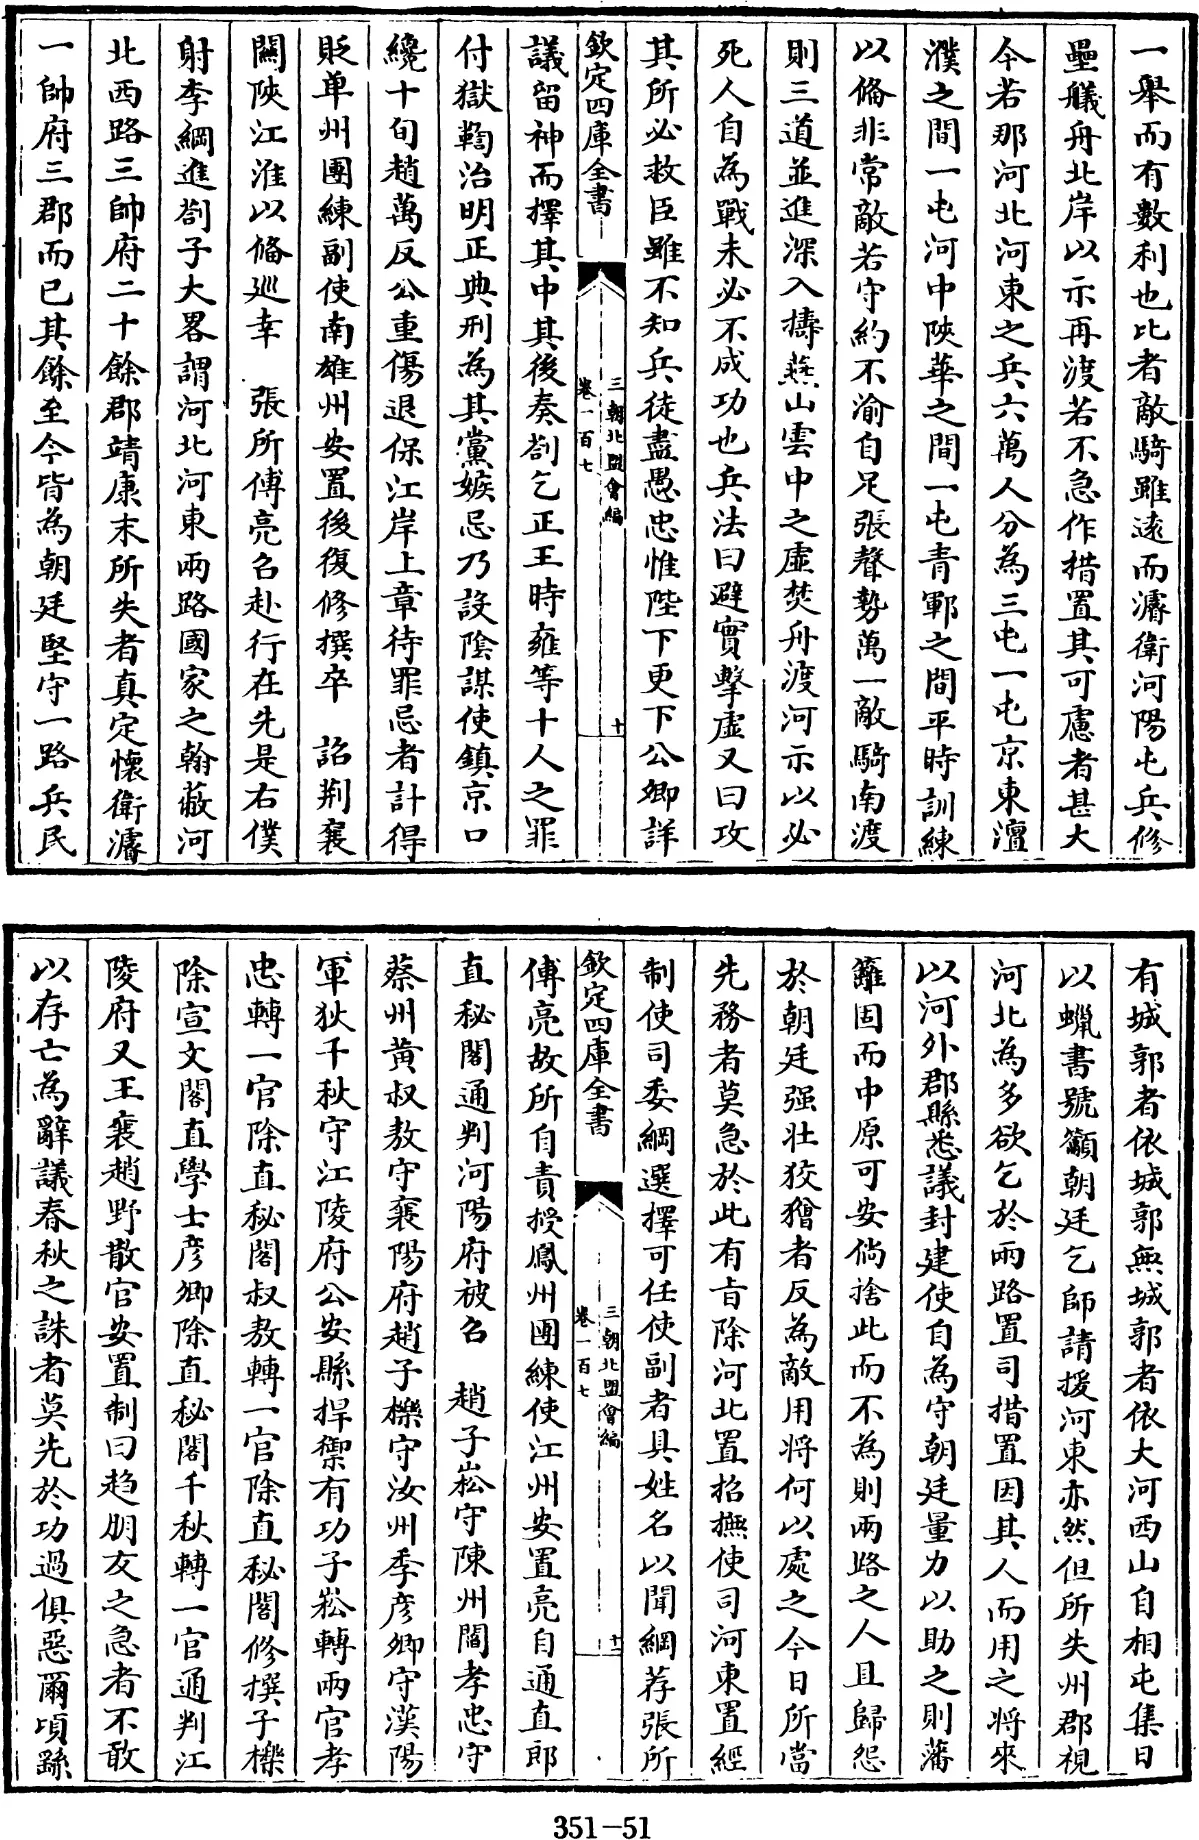 一舉而有數利也比者敵騎雖逺而濬衛河陽屯兵修
壘艤舟北岸以示再渡若不急作措置其可慮者甚大
今若那河北河東之兵六萬人分為三屯一屯京東澶
濮之間一屯河中陜華之間一屯青鄆之間平時訓練
以偹非常敵若守約不渝自足張聲勢萬一敵騎南渡
則三道並進深入擣燕山雲中之虛焚舟渡河示以必
死人自為戰未必不成功也兵法曰避實擊虛又曰攻
其所必救臣雖不知兵徒盡愚忠惟陛下更下公卿詳
欽定四庫全書
三朝北盟會編
卷一百七
十
議留神而擇其中其後奏劄乞正王時雍等十人之罪
付獄鞫治明正典刑為其黨嫉忌乃設陰謀使鎮京口
纔十旬趙萬反公重傷退保江岸上章待罪忌者計得
貶单州團練副使南雄州安置後復修撰卒　詔荆襄
關陜江淮以偹廵幸　張所傅亮召赴行在先是右僕
射李綱進劄子大畧謂河北河東兩路國家之翰蔽河
北西路三帥府二十餘郡靖康末所失者真定懷衛濬
一帥府三郡而已其餘至今皆為朝廷堅守一路兵民
有城郭者依城郭無城郭者依大河西山自相屯集日
以蠟書號籲朝廷乞師請援河東亦然但所失州郡視
河北為多欲乞於兩路置司措置因其人而用之將來
以河外郡縣悉議封建使自為守朝廷量力以助之則藩
籬固而中原可安倘捨此而不為則兩路之人且歸怨
於朝廷强壮狡獪者反為敵用将何以處之今日所當
先務者莫急於此有㫖除河北置招撫使司河東置經
制使司委綱選擇可任使副者具姓名以聞綱荐張所
欽定四庫全書
三朝北盟會編
卷一百七
十一
傅亮故所自責授鳳州團練使江州安置亮自通直郎
直秘閣通判河陽府被召　趙子崧守陳州閻孝忠守
蔡州黄叔敖守襄陽府趙子櫟守汝州季彦卿守漢陽
軍狄千秋守江陵府公安縣捍禦有功子崧轉兩官孝
忠轉一官除直秘閣叔敖轉一官除直秘閣修撰子櫟
除宣文閣直學士彦卿除直秘閣千秋轉一官通判江
陵府又王襄趙野散官安置制曰趋朋友之急者不敢
以存亡為辭議春秋之誅者莫先於功過俱惡爾頃繇
351-51